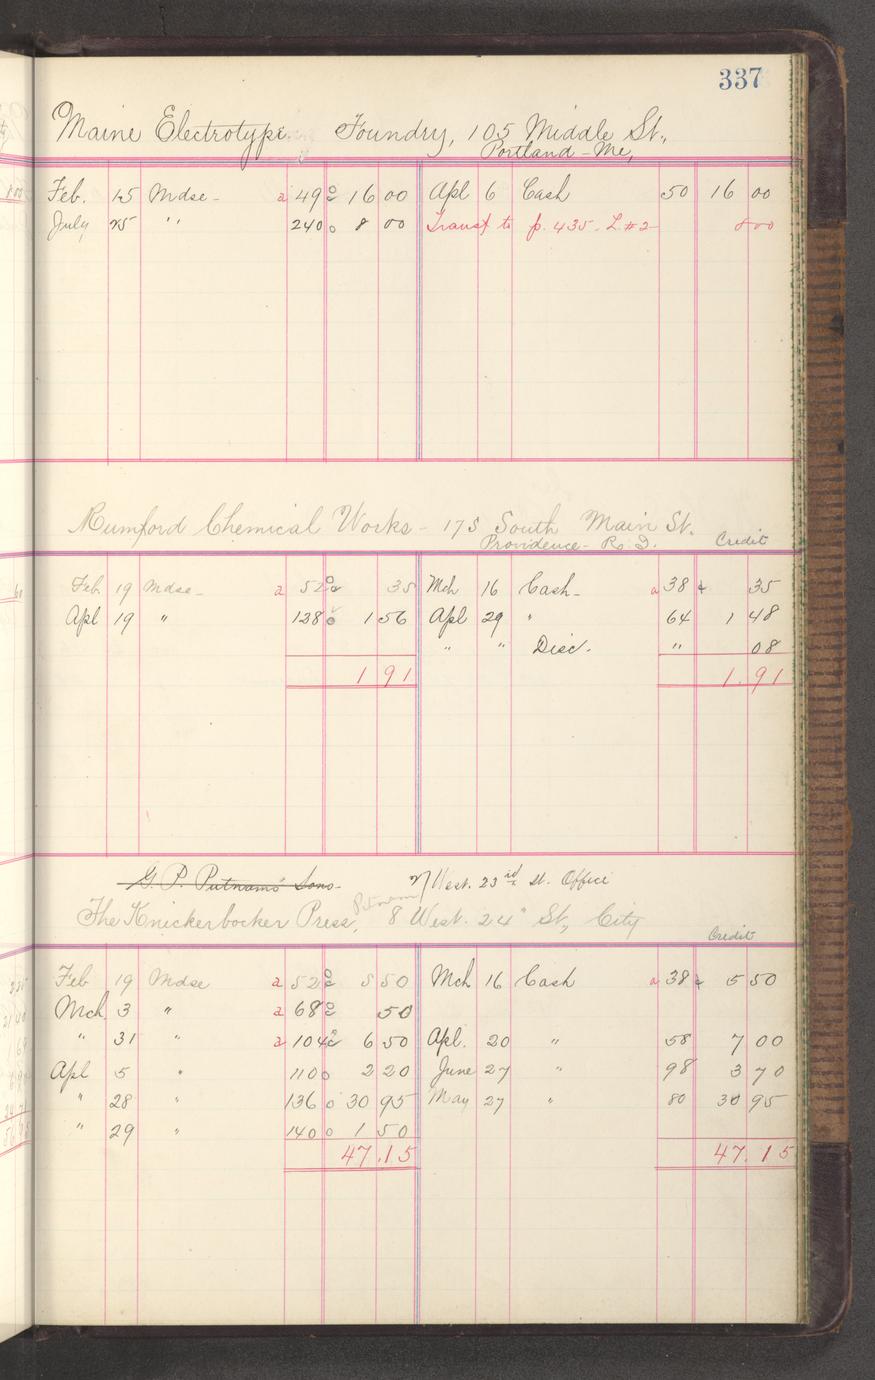 337
Maine Electrotype Foundry, 105 Middle St.,
Portland - Me,
Feb. 15 Mdse - a 49 16 00 Apl 6 Cash 50 16 00
July 25 " 240 8 00 Transf to p. 435. L #2 8 00
Rumford Chemical Works - 175 South Main St.
Providence - R. I. Credit
Feb 19 Mdse - a 52 35 Mch 16 Cash - a 38 35
Apl 19 " 128 1 56 Apl 29 " 64 1 48
" " Disc. " 08
1 91 1.91
G. P. Putnams Sons West. 23rd St. Office
The Knickerbocker Press, Putnam 8 West. 24" St., City
Credit
Feb 19 Mdse a 52 5 50 Mch 16 Cash a 38 5 50
Mch 3 " a 68 50
" 31 " a 104 6 50 Apl. 20 " 58 7 00
Apl 5 " 110 2 20 June 27 " 98 3 70
" 28 " 136 30 95 May 27 " 80 30 95
" 29 " 140 1 50
47.15 47.15